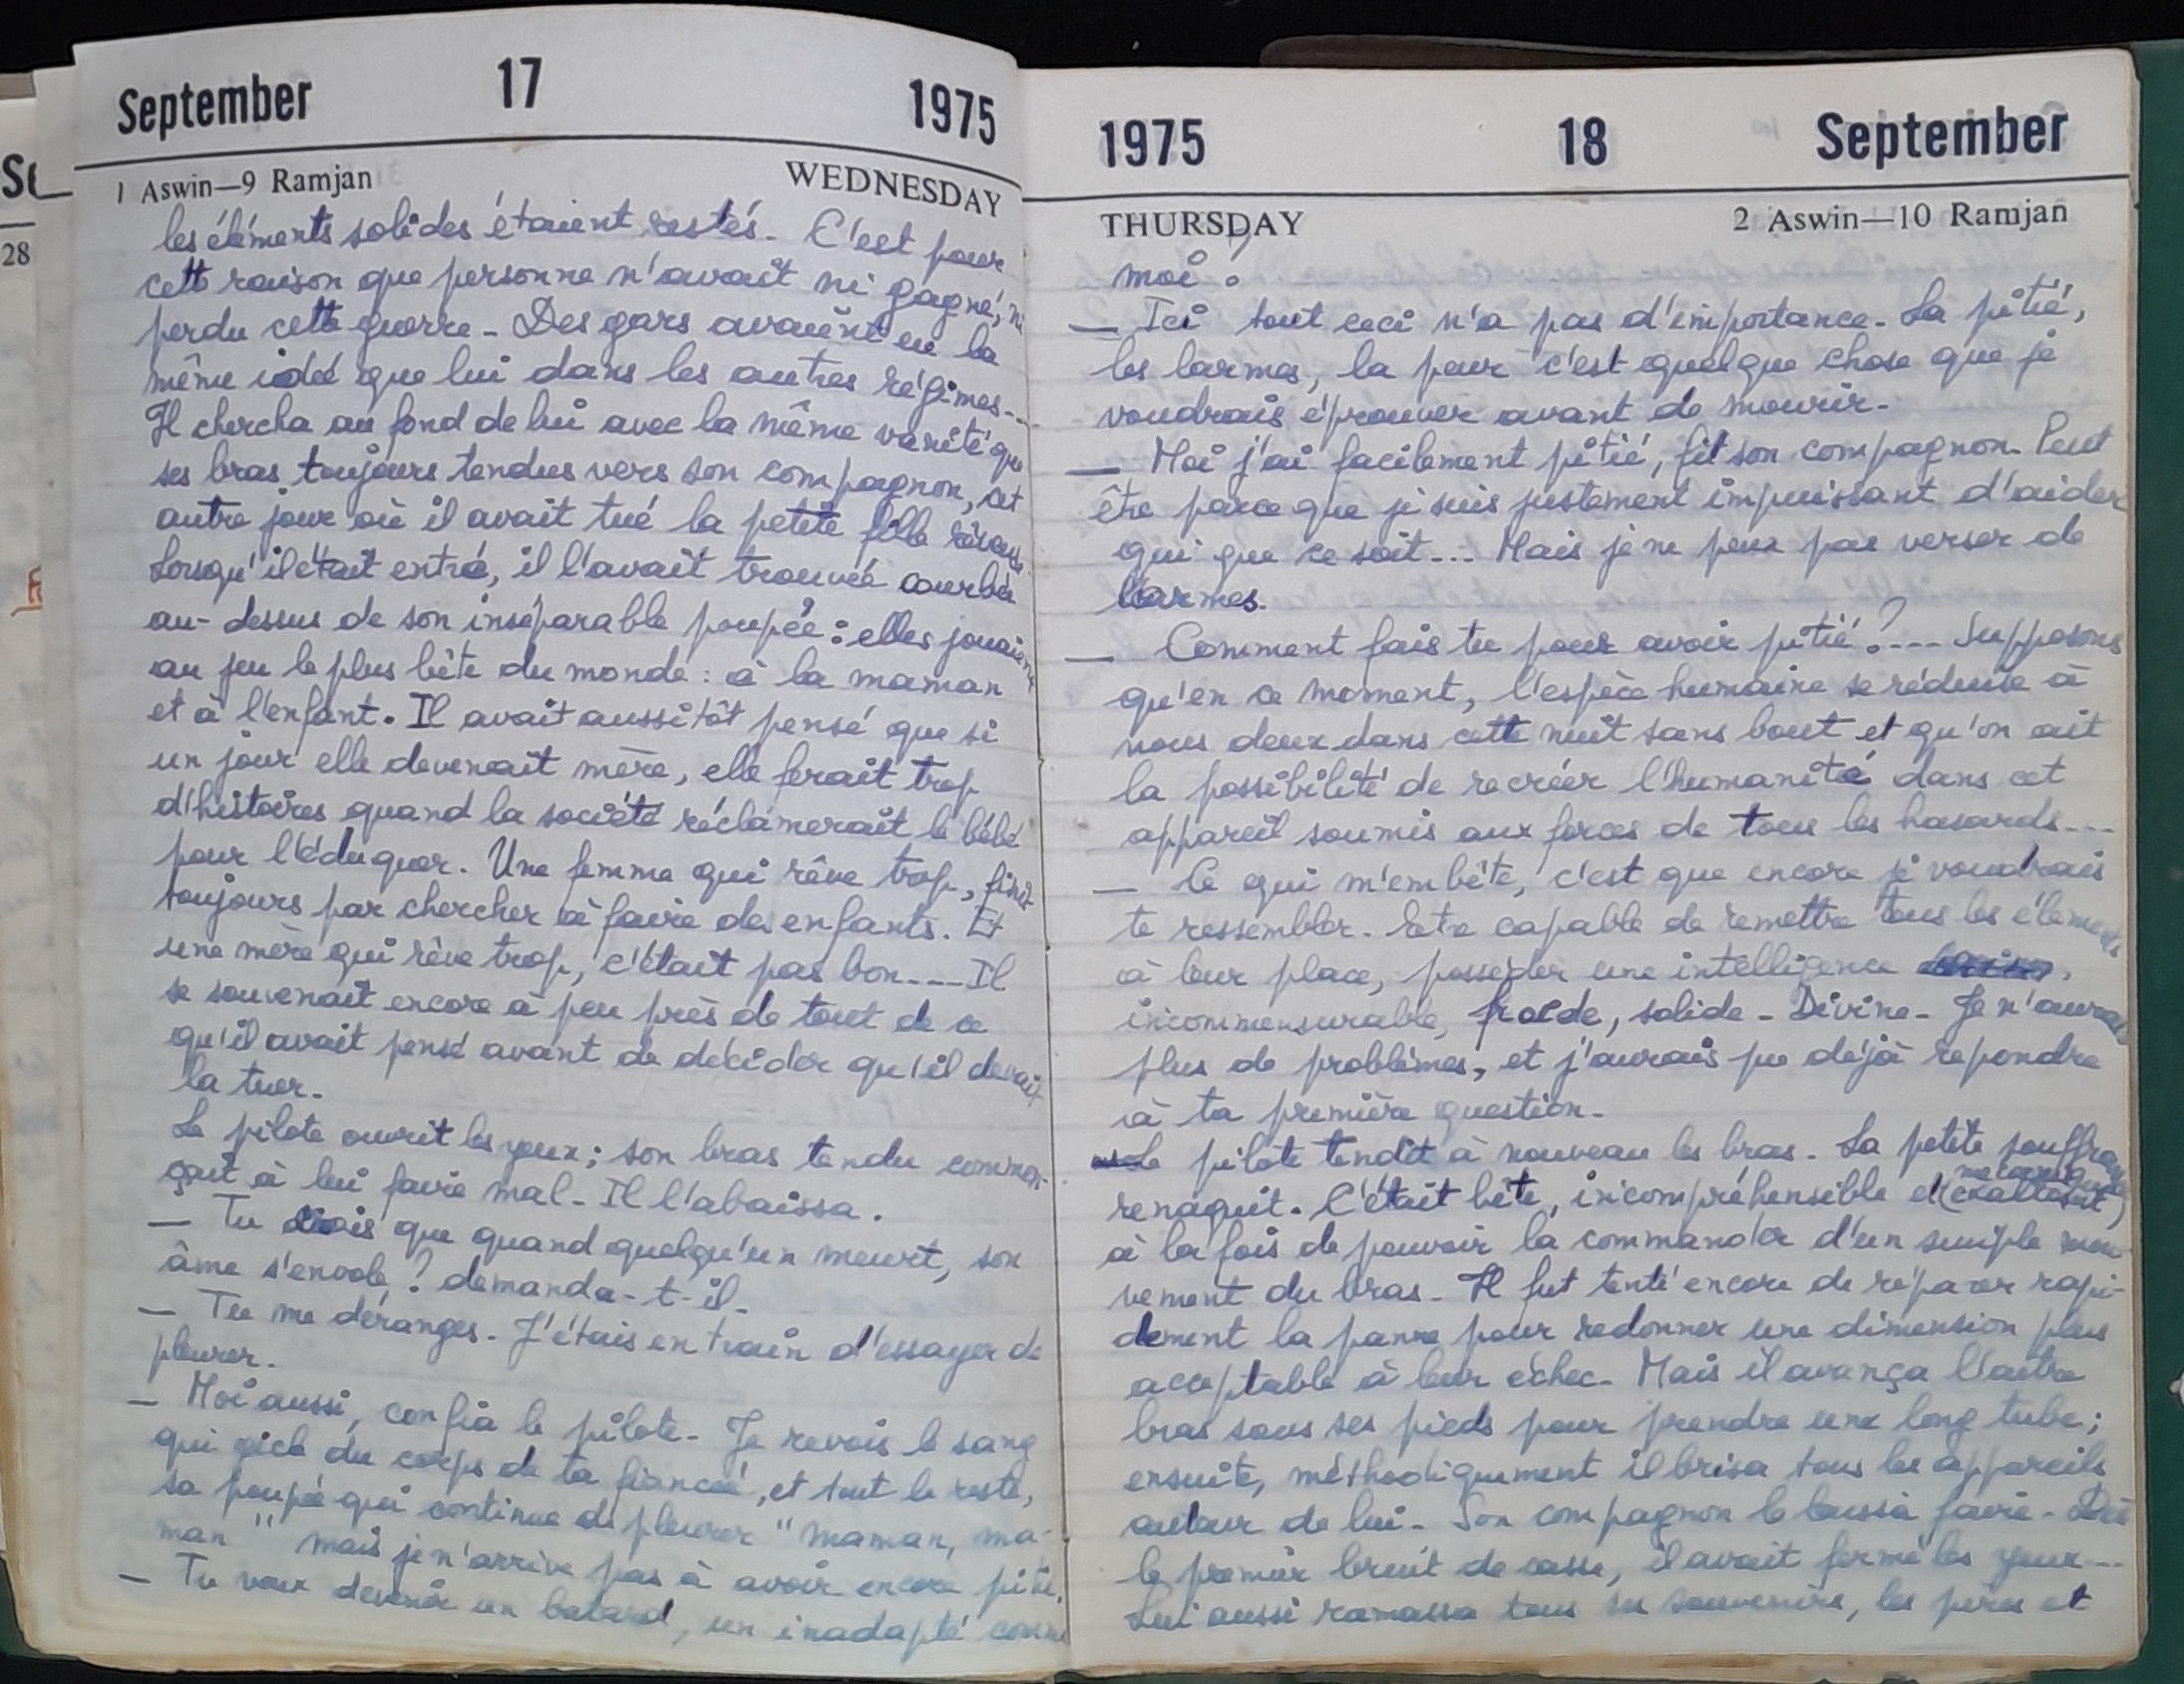 September 17 1975
1 Aswin—9 Ramjan WEDNESDAY
les éléments solides étaient restés. C'est pour
cette raison que personne n'avait ni gagné, ni
perdu cette guerre - Des gars avaient eu la
même idée que lui dans les autres régimes...
Il chercha au fond de lui avec la même vanité que
ses bras toujours tendus vers son compagnon, cet
autre jour où il avait tué la petite fille
Lorsqu'il était entré, il l'avait trouvée courbée
au-dessus de son inséparable poupée : elles jouaient
au jeu le plus bête du monde : à la maman
et à l'enfant. Il avait aussitôt pensé que si
un jour elle devenait mère, elle ferait trop
d'histoires quand la société réclamerait le bébé
pour l'éduquer. Une femme qui rêve trop, finit
toujours par chercher à faire des enfants. Et
une mère qui rêve trop, c'était pas bon.... Il
se souvenait encore à peu près de tout de ce
qu'il avait pensé avant de décider qu'il devait
la tuer.
Le pilote ouvrit les yeux ; son bras tendu commen-
çait à lui faire mal - Il l'abaissa.
— Tu crois que quand quelqu'un meurt, son
âme s'envole ? demanda-t-il.
— Tu me déranges. J'étais en train d'essayer de
pleurer.
— Moi aussi, confia le pilote - Je revois le sang
qui gicle du corps de ta fiancée, et tout le reste,
sa poupée qui continue de pleurer "maman, ma-
man" mais je n'arrive pas à avoir encore pitié.
— Tu veux devenir un batard, un inadapté comme
1975 18 September
THURSDAY 2 Aswin—10 Ramjan
moi ?
— Ici tout ceci n'a pas d'importance - La pitié,
les larmes, la peur c'est quelque chose que je
voudrais éprouver avant de mourir -
— Moi j'ai facilement pitié, fit son compagnon. Peut
être parce que je suis justement impuissant d'aider
qui que ce soit... Mais je ne peux pas verser de
larmes.
— Comment fais tu pour avoir pitié ?.... Supposons
qu'en ce moment, l'espèce humaine se réduise à
nous deux dans cette nuit sans bout et qu'on ait
la possibilité de recréer l'humanité dans cet
appareil soumis aux forces de tous les hasards....
— Ce qui m'embête, c'est que encore je voudrais
te ressembler. Etre capable de remettre tous les éléments
à leur place, posséder une intelligence
incommensurable, froide, solide - Divine - Je n'aurai
plus de problèmes, et j'aurais pu déjà repondre
à ta première question -
Le pilote tendit à nouveau les bras - La petite souffrance
mécanique
renaquit. C'était bête, incompréhensible et (exaltant)
à la fois de pouvoir la commander d'un simple mou-
vement du bras - Il fut tenté encore de réparer rapi-
dement la panne pour redonner une dimension plus
acceptable à leur échec - Mais il avança l'autre
bras sous ses pieds pour prendre une long tube ;
ensuite, méthodiquement il brisa tous les appareils
autour de lui - Son compagnon le laissa faire - Dès
le premier bruit de casse, il avait fermé les yeux...
Lui aussi ramassa tous ses souvenirs, les pires et